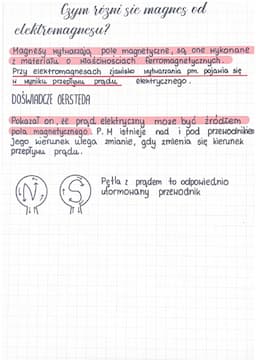 Czym różni się magnes od
elektromagnesu?
Magnesy wytwarzają pole magnetyczne, są one wykonane
z materiału o właściwościach ferromagnetycznych.
Przy elektromagnesach zjawisko wytwarzania pm. pojawia się
w wyniku przepływu prądu elektrycznego.
DOŚWIADCZE OERSTEDA
Pokazał on, że prąd elektryczny może być źródłem
pola magnetycznego. P. M istnieje nad i pod przewodnikiem
Jego kierunek ulega zmianie, gdy zmienia się kierunek
przepływu prądu.
N S
Pętla z prądem to odpowiednio
uformowany przewodnik